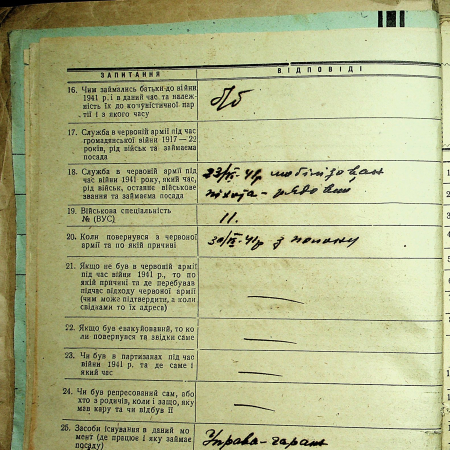 ЗАПИТАННЯ
ВІДПОВІДІ
16. Чим займались батьки до війни
1941 р. і в даний час та належ-
ність їх до комуністичної пар
тії і з якого часу
б/п
17. Служба в червоній армії під час
громадянської війни 1917 — 22
років, рід військ та займаєма
посада
18. Служба в червоній армії під
час війни 1941 року, який час,
рід військ, останнє військове
звання та займаєма посада
23/VI-41р мобілізован
піхота - рядовий
19. Військова спеціальність
№ (ВУС)
11.
20. Коли повернувся з червоної
армії та по якій причині
41р з полону
21. Якщо не був в червоній армії
під час війни 1941 р., то по
якій причині та де перебував
підчас відходу червоної армії
(чим може підтвердити, а коли
свідками то їх адрес)
22. Якщо був евакуйований, то ко
ли повернувся та звідки саме
23. Чи був в партизанах під час
війни 1941 р. та де саме і
який час
24. Чи був репресований сам, або
хто з родичів, коли і защо, яку
мав кару та чи відбув її
25. Засоби існування в даний мо
мент (де працює і яку займає
посаду)
Управа-